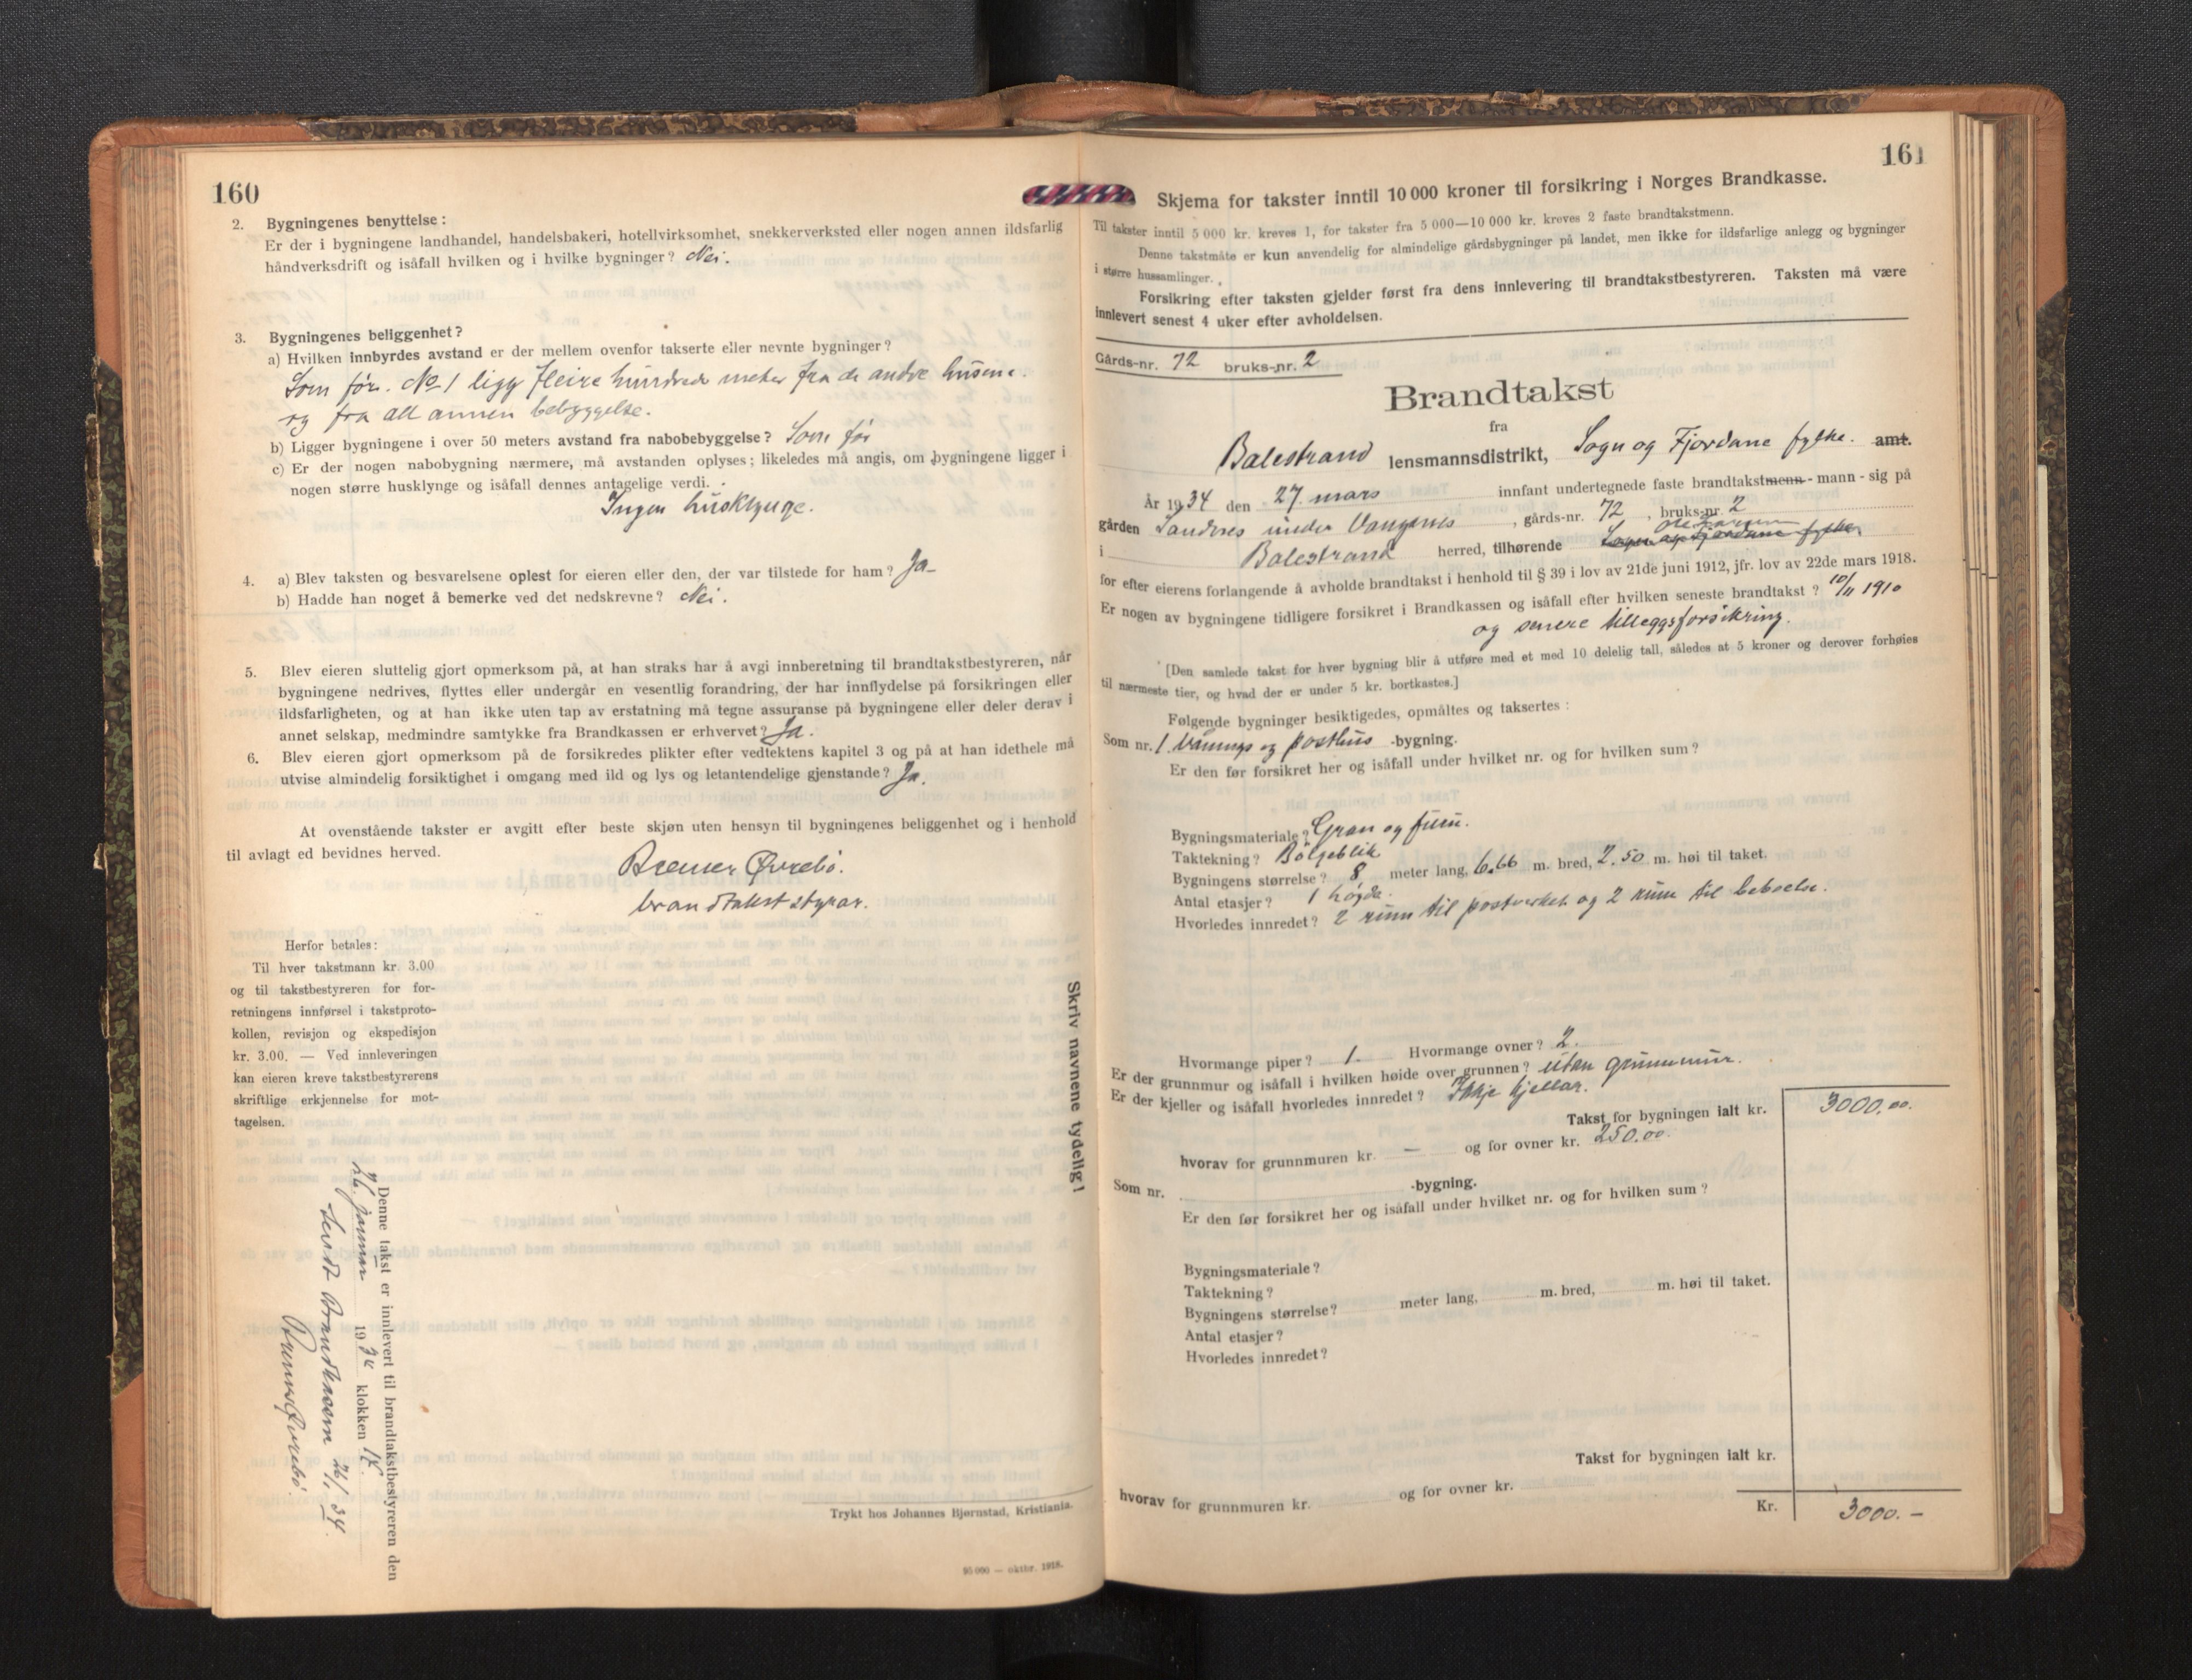 160
2. Bygningenes benyttelse:
Er der i bygningene landhandel, handelsbakeri, hotellvirksomhet, snekkerverksted eller nogen annen ildsfarlig
håndverksdrift og isåfall hvilken og i hvilke bygninger? Nei.
3. Bygningenes beliggenhet?
a) Hvilken innbyrdes avstand er der mellem ovenfor takserte eller nevnte bygninger?
Som før. No 1 ligg fleire hundrede meter fra de andre husene.
og fra all annen bebyggelse.
b) Ligger bygningene i over 50 meters avstand fra nabobebyggelse? Som før
c) Er der nogen nabobygning nærmere, må avstanden oplyses; likeledes må angis, om bygningene ligger i
nogen større husklynge og isåfall dennes antagelige verdi.
Ingen husklynge.
4. a) Blev taksten og besvarelsene oplest for eieren eller den, der var tilstede for ham? Ja
b) Hadde han noget å bemerke ved det nedskrevne? Nei.
5. Blev eieren sluttelig gjort opmerksom på, at han straks har å avgi innberetning til brandtakstbestyreren, når
bygningene nedrives, flyttes eller undergår en vesentlig forandring, der har innflydelse på forsikringen eller
ildsfarligheten, og at han ikke uten tap av erstatning må tegne assuranse på bygningene eller deler derav i
annet selskap, medmindre samtykke fra Brandkassen er erhvervet? Ja.
6. Blev eieren gjort opmerksom på de forsikredes plikter efter vedtektens kapitel 3 og på at han idethele må
utvise almindelig forsiktighet i omgang med ild og lys og letantendelige gjenstande? Ja.
At ovenstående takster er avgitt efter beste skjøn uten hensyn til bygningenes beliggenhet og i henhold
til avlagt ed bevidnes herved.
Øvrebø.
brandtakststyrar.
Herfor betales:
Til hver takstmann kr. 3.00
og til takstbestyreren for for-
retningens innførsel i takstproto-
kollen, revisjon og ekspedisjon
kr. 3.00. — Ved innleveringen
kan eieren kreve takstbestyrerens
skriftlige erkjennelse for mot-
tagelsen.
Skriv navnene tydelig!
Denne takst er innlevert til brandtakstbestyreren den
26. januar 1934 klokken
Sendt Brandkassen 26/1 34
Øvrebø.
Trykt hos Johannes Bjørnstad, Kristiania.
95 000 — oktbr. 1918.
161
Skjema for takster inntil 10 000 kroner til forsikring i Norges Brandkasse.
Til takster inntil 5 000 kr. kreves 1, for takster fra 5 000—10 000 kr. kreves 2 faste brandtakstmenn.
Denne takstmåte er kun anvendelig for almindelige gårdsbygninger på landet, men ikke for ildsfarlige anlegg og bygninger
i større hussamlinger.
Forsikring efter taksten gjelder først fra dens innlevering til brandtakstbestyreren. Taksten må være
innlevert senest 4 uker efter avholdelsen.
Gårds-nr. 72 bruks-nr. 2
Brandtakst
fra
Balestrand lensmannsdistrikt, Sogn og Fjordane fylke. amt.
År 1934 den 27. mars innfant undertegnede faste brandtakstmenn - mann - sig på
gården Sandnes under Vangsnes, gårds-nr. 72, bruks-nr. 2
i Balestrand herred, tilhørende Sogn og Fjordane fylke
for efter eierens forlangende å avholde brandtakst i henhold til § 39 i lov av 21de juni 1912, jfr. lov av 22de mars 1918.
Er nogen av bygningene tidligere forsikret i Brandkassen og isåfall efter hvilken seneste brandtakst? 10/11 1910
og senere tilleggsforsikring.
[Den samlede takst for hver bygning blir å utføre med et med 10 delelig tall, således at 5 kroner og derover forhøies
til nærmeste tier, og hvad der er under 5 kr. bortkastes.]
Følgende bygninger besiktigedes, opmåltes og taksertes:
Som nr. 1. Vånings og posthus -bygning.
Er den før forsikret her og isåfall under hvilket nr. og for hvilken sum?
Bygningsmateriale? Gran og furu.
Taktekning? Bölgeblik
Bygningens størrelse? 8 meter lang, 6.66 m. bred, 2.50 m. høi til taket.
Antal etasjer? 1 høgde
Hvorledes innredet? 2 rum til postverket og 2 rum til beboelse.
Hvormange piper? 1. Hvormange ovner? 2.
Er der grunnmur og isåfall i hvilken høide over grunnen? utan grunnmur.
Er der kjeller og isåfall hvorledes innredet? Ikkje kjellar.
Takst for bygningen ialt kr. 3000.00.
hvorav for grunnmuren kr. — og for ovner kr. 250.00.
Som nr. -bygning.
Er den før forsikret her og isåfall under hvilket nr. og for hvilken sum?
Bygningsmateriale?
Taktekning?
Bygningens størrelse? meter lang, m. bred, m. høi til taket.
Antal etasjer?
Hvorledes innredet?
Takst for bygningen ialt kr.
hvorav for grunnmuren kr. og for ovner kr.
Kr. 3000.-